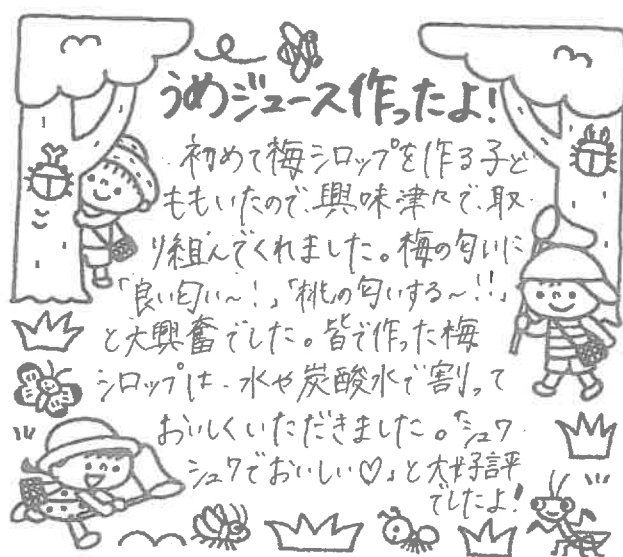 うめジュース作ったよ!
初めて梅シロップを作る子ど
ももいたので、興味津々で、取
り組んでくれました。梅の匂いに
「良い匂い〜!」「桃の匂いする〜!!」
と大興奮でした。皆で作った梅
シロップは、水や炭酸水で割って
おいしくいただきました。「シュワ
シュワでおいしい♡」と大好評
でしたよ!